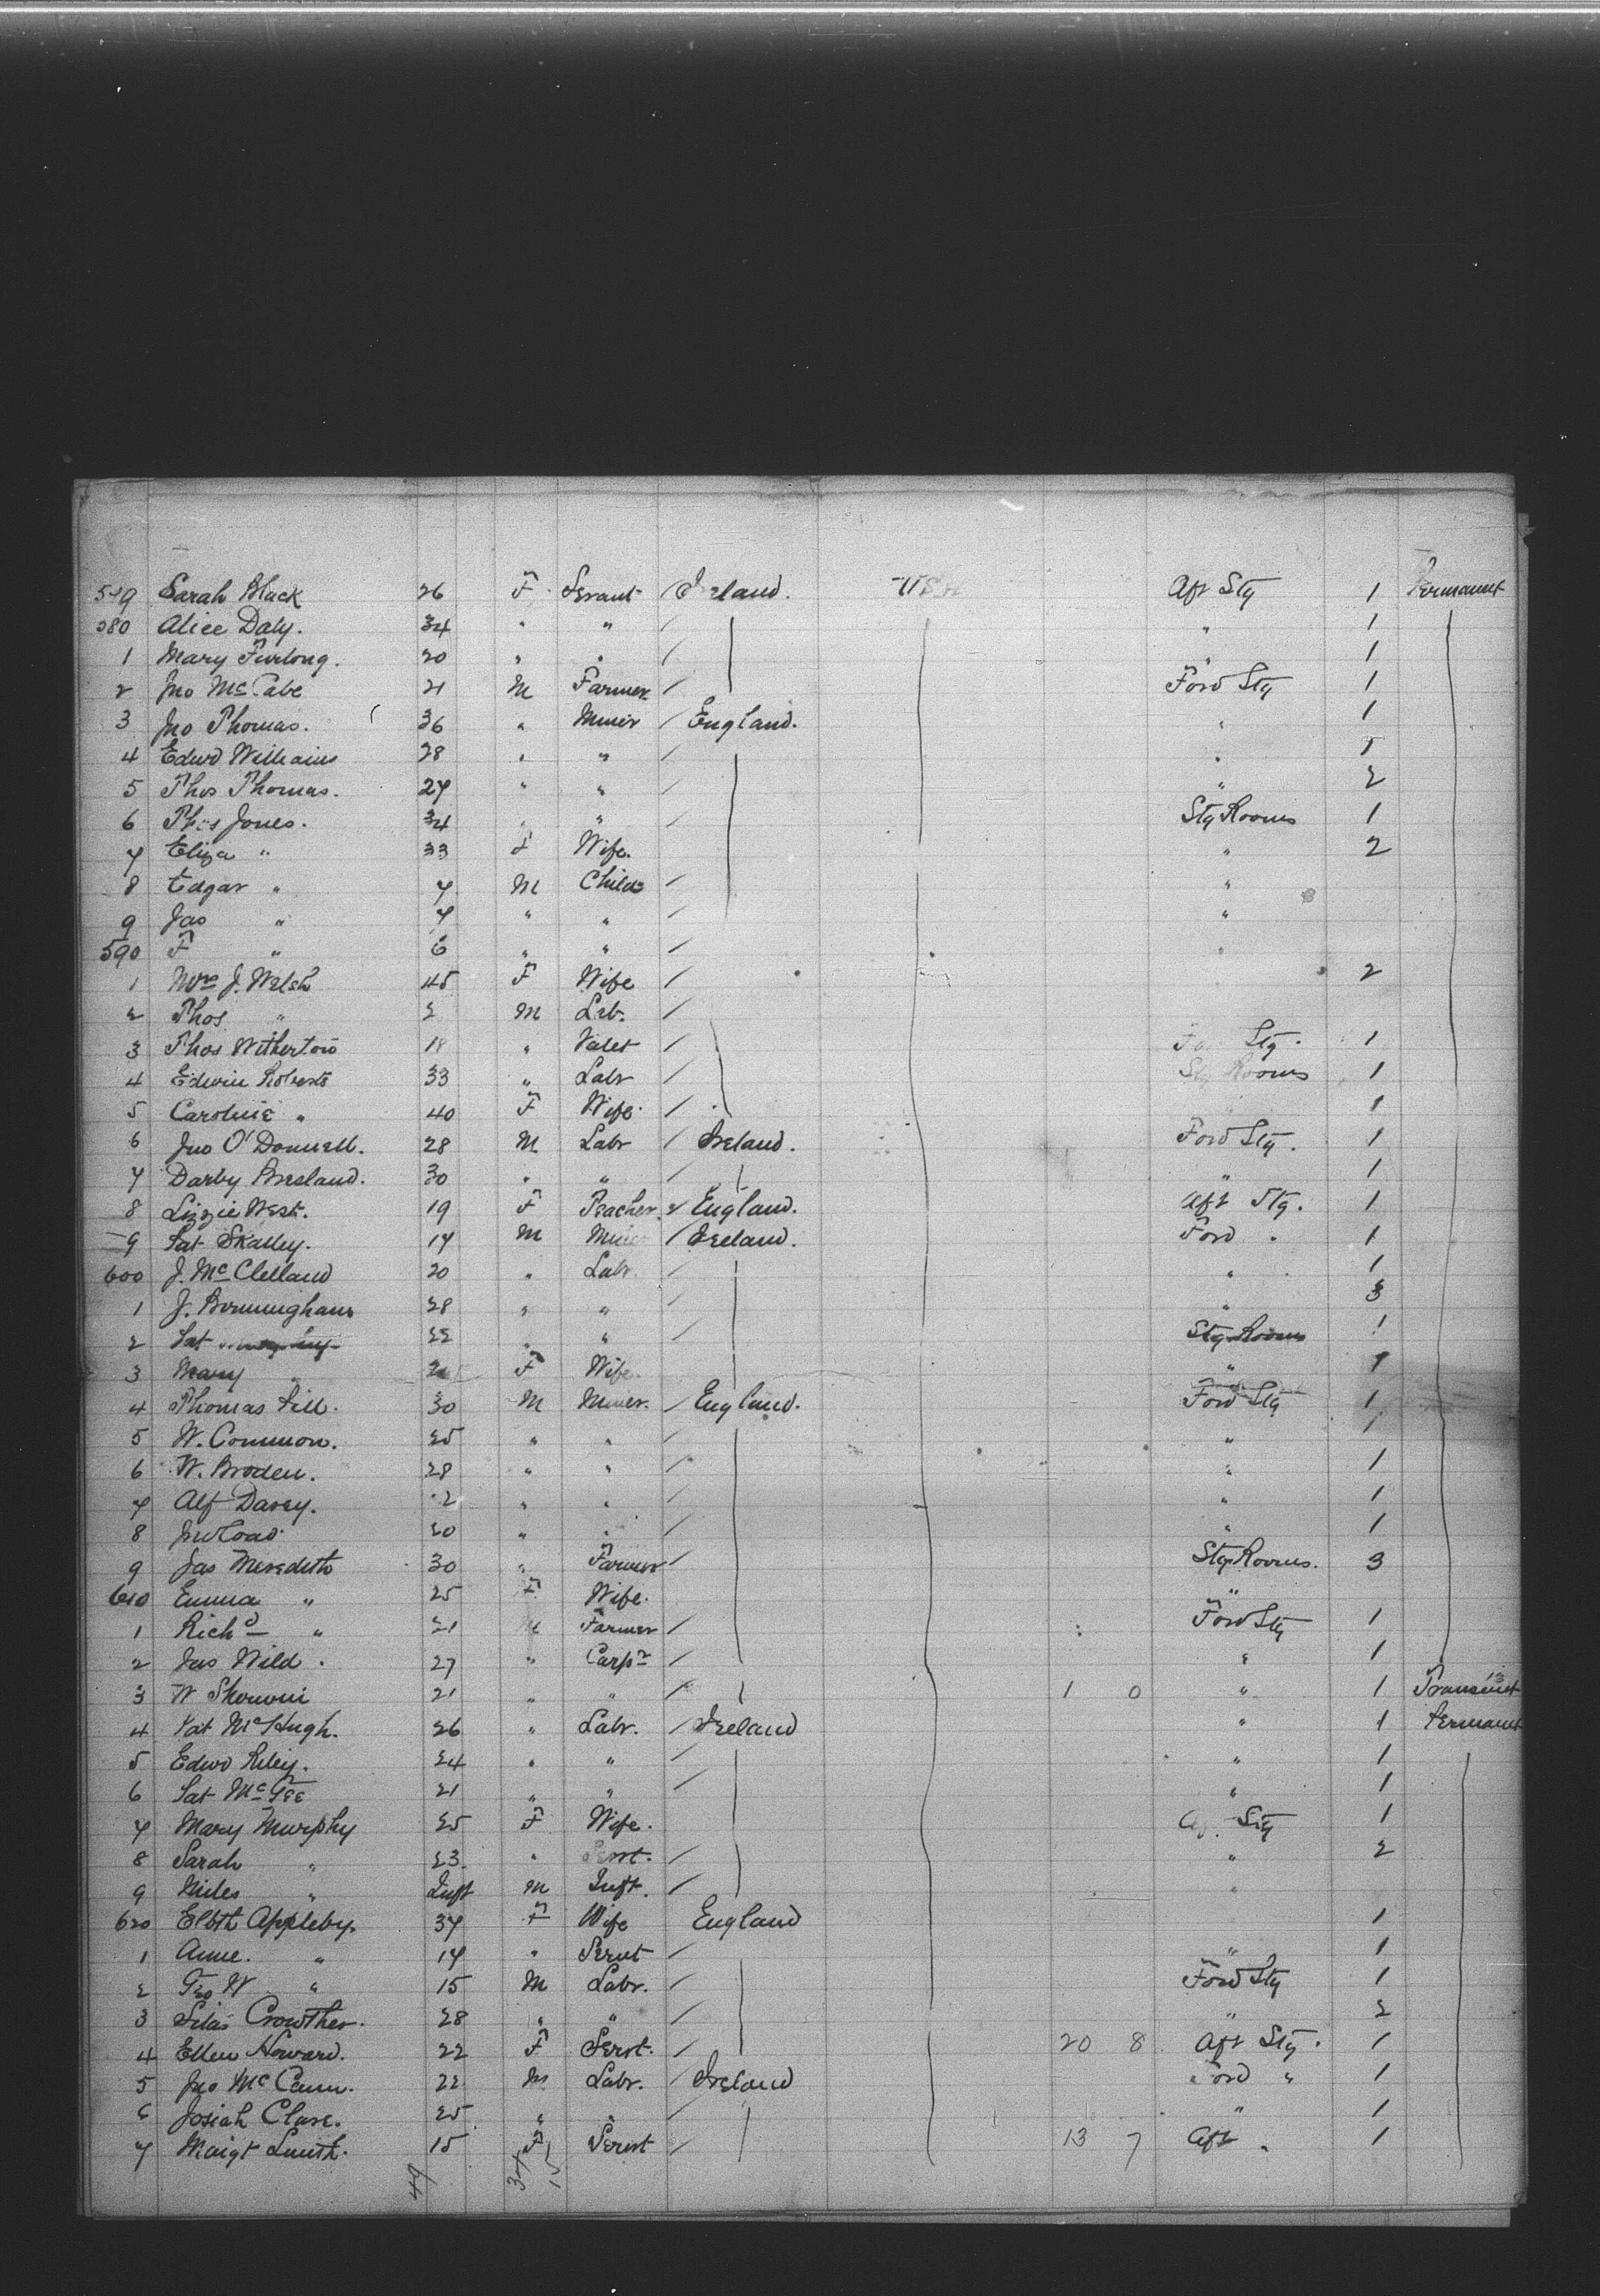 579 Sarah Black 26 F Servant / Ireland. U.S.A Aft Stg 1 Permanent
580 Alice Daly. 34 " " / " 1
1 Mary Furlong. 20 " " / " 1
2 Jno McCabe 21 M Farmer / Ford Stg 1
3 Jno Thomas. 36 " Miner / England. " 1
4 Edwd Williams 28 " " / " 1
5 Thos Thomas. 27 " " / " 2
6 Thos Jones. 34 " " / Stg Rooms 1
7 Eliza " 33 F Wife. " 2
8 Edgar " 7 M Child / "
9 Jas " 4 " " / "
590 F " 6 " " / "
1 Mrs J. Welsh 45 F Wife / 2
2 Thos " 2 M /
3 Thos Witherton 18 " Valet / Stg. 1
4 Edwin Roberts 33 " Labr / Stg Rooms 1
5 Caroline " 40 F Wife. / 1
6 Jno O'Donnell. 28 M Labr / Ireland. Ford Stg. 1
7 Darby Bresland. 30 " " / " 1
8 Lizzie West. 19 F Teacher England. Aft Stg. 1
9 Pat Skalley. 17 M Miner / Ireland. Ford " 1
600 J. McClelland 20 " Labr. / " 1
1 J. Bermingham 28 " " / " 3
2 Pat 22 " " / Stg Rooms 1
3 Mary " F Wife " 1
4 Thomas Hill. 30 M Miner. / England. Ford Stg 1
5 W. Common. 25 " " / " 1
6 W. Broden. 28 " " / " 1
7 Alf Davey. " " / " 1
8 Jno Coad 20 " " / " 1
9 Jas Meredith 30 " Farmer / Stg Rooms. 3
610 Emma " 25 F Wife. "
1 Richd " 21 M Farmer / Ford Stg 1
2 Jas Wild. 27 " Carpr / " 1
3 W 21 " " / 1 0 " 1 Transient
4 Pat McHugh. 26 " Labr. / Ireland " 1 Permanent
5 Edwd Riley. 24 " " / " 1
6 Pat McGee 21 " " / " 1
7 Mary Murphy 25 F Wife. Aft Stg 1
8 Sarah " 23 " Servt. / " 2
9 Miles " Inft M Inft. / "
620 Elbth Appleby. 37 F Wife England 1
1 Anne. " 17 " Servt / " 1
2 Geo W " 15 M Labr. / Ford Stg 1
3 Silas Crowther. 28 " " / " 2
4 Ellen Howard. 22 F Servt. / 20 8 Aft Stg. 1
5 Jno McCann. 22 M Labr. / Ireland Ford " 1
6 Josiah Clare. 25 " " / " 1
7 Margt Smith. 15 F Servt / 13 7 Aft " 1
49 34 15